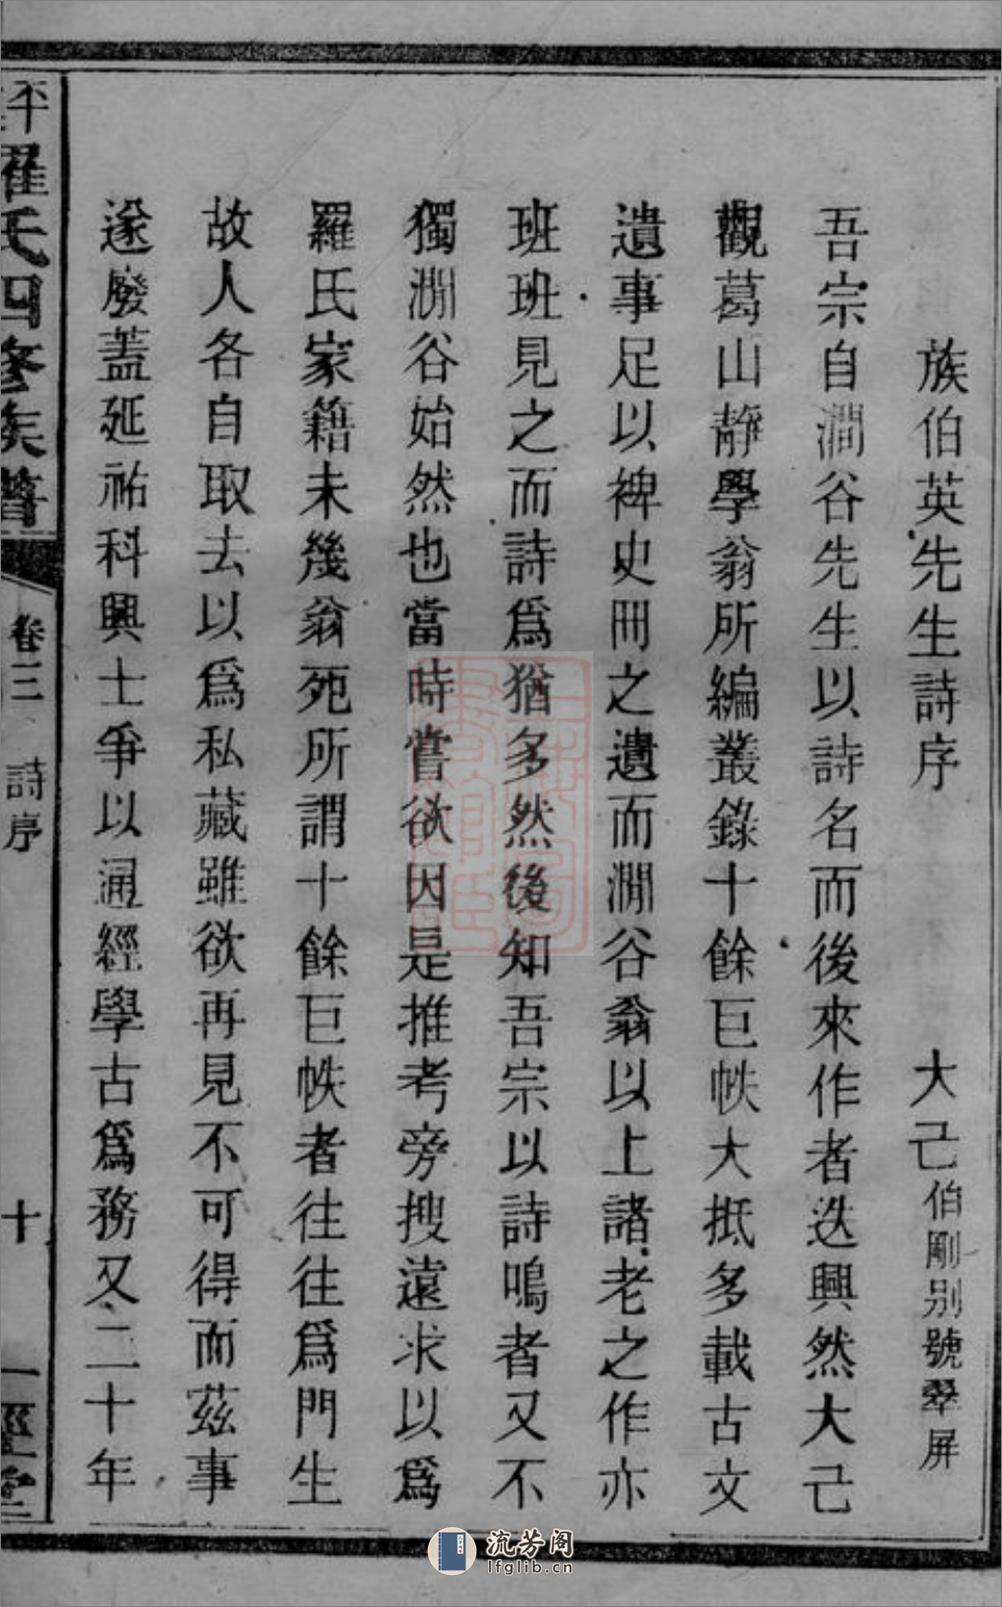 族伯英先生詩序
大己伯剛别號翠屏
吾宗自澗谷先生以詩名而後來作者迭興然大己
觀葛山靜學翁所編叢錄十餘巨帙大抵多載古文
遺事足以裨史冊之遺而澗谷翁以上諸老之作亦
班班見之而詩爲猶多然後知吾宗以詩鳴者又不
獨澗谷始然也當時嘗欲因是推考旁搜遠求以爲
羅氏家籍未幾翁死所謂十餘巨帙者往往爲門生
故人各自取去以爲私藏雖欲再見不可得而茲事
遂廢蓋延祐科興士爭以通經學古爲務又二十年
羅氏四修族譜
卷三
詩序
十
一經堂
流芳阁
lfglib.cn